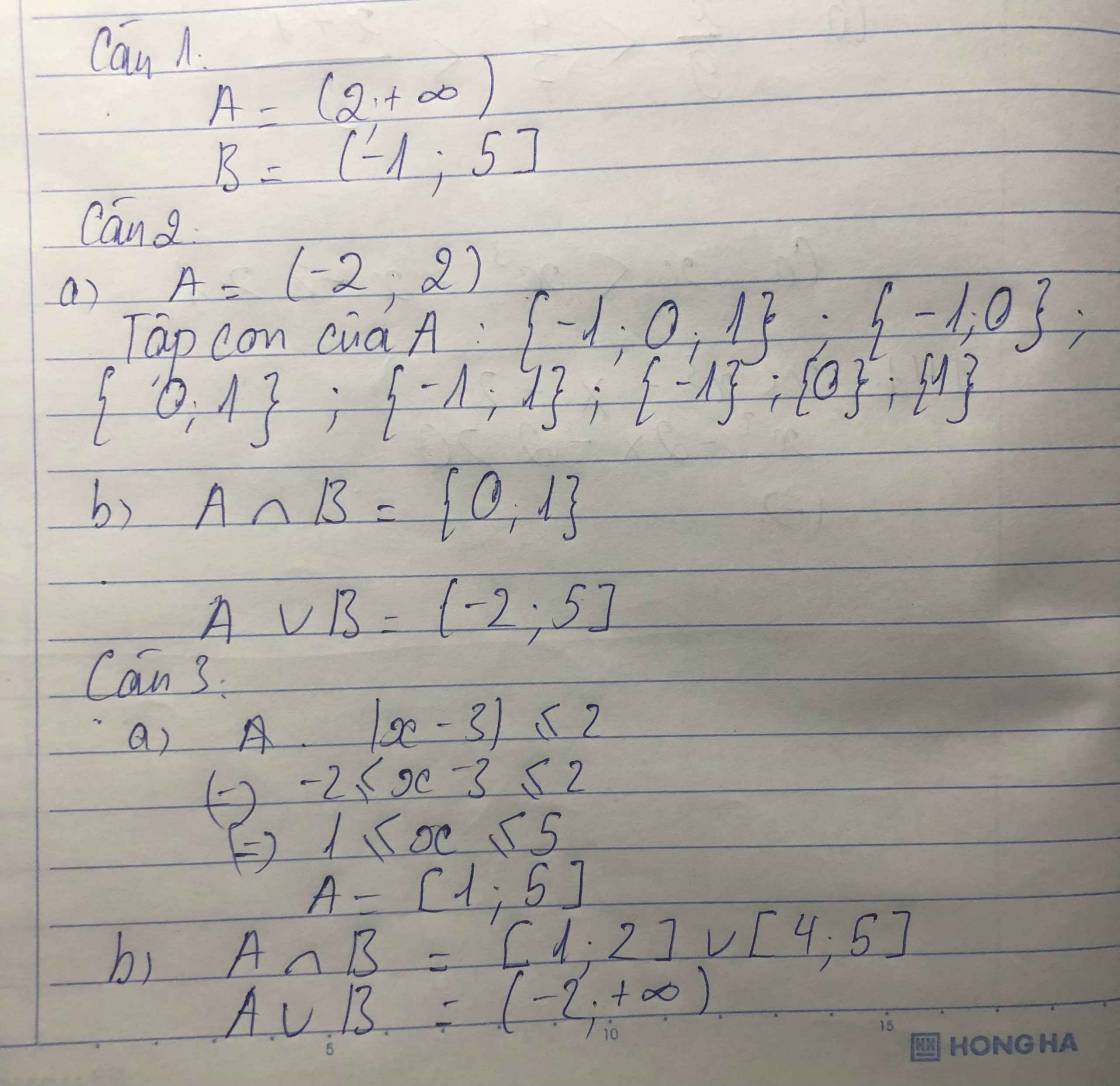 Câu 1:
A = (2; +∞)
B = (-1; 5]
Câu 2:
a) A = (-2; 2)
Tập con của A : {-1; 0; 1} ; {-1; 0} ;
{0; 1} ; {-1; 1} ; {-1} ; {0} ; {1}
b) A ∩ B = {0; 1}
A ∪ B = (-2; 5]
Câu 3:
a) A. |x - 3| ≤ 2
(=) -2 ≤ x - 3 ≤ 2
(=) 1 ≤ x ≤ 5
A = [1; 5]
b) A ∩ B = [1; 2] ∪ [4; 5]
A ∪ B = (-2; +∞)
5 10 15
HH HONG HA